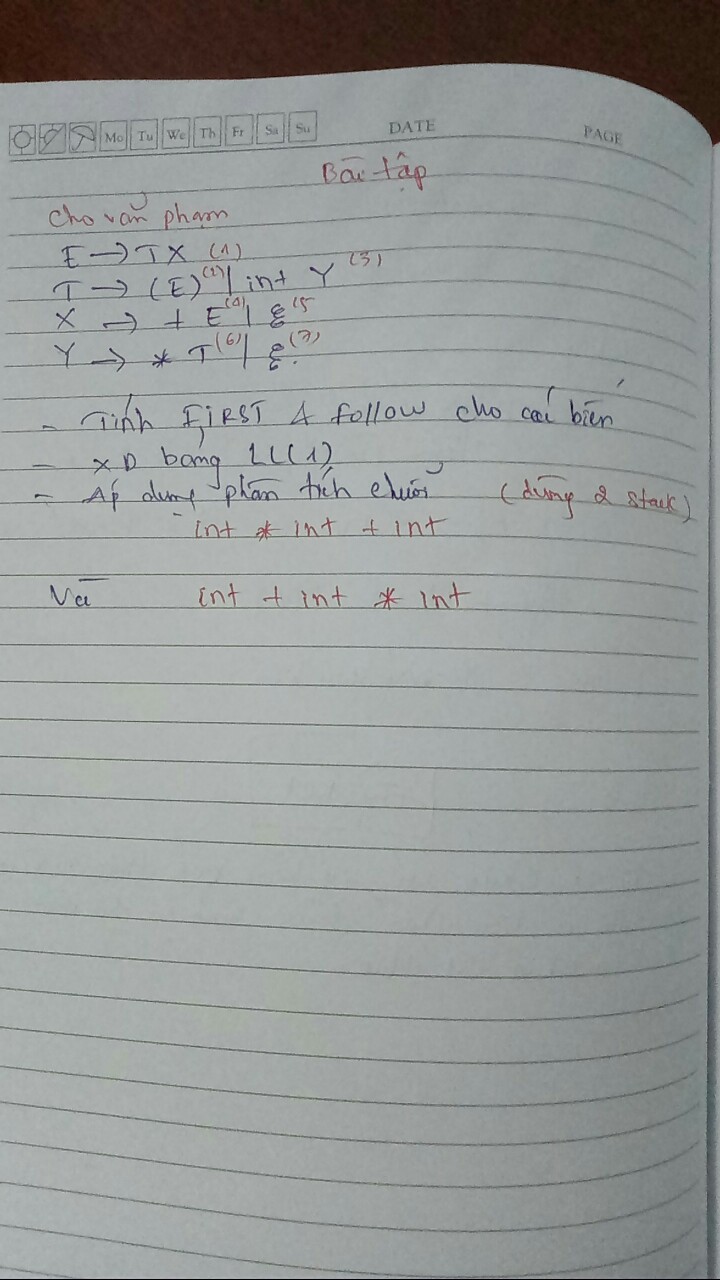 Mo Tu We Th Fr Sa Su DATE PAGE
Bài tập
Cho văn phạm
E → TX (1)
T → (E) (2) | int Y (3)
X → + E (4) | ε (5
Y → * T (6) | ε (7)
- Tính FiRST & follow cho các biến
- XD bảng LL(1)
- Áp dụng phân tích chuỗi (dùng 2 stack)
int * int + int
Và int + int * int